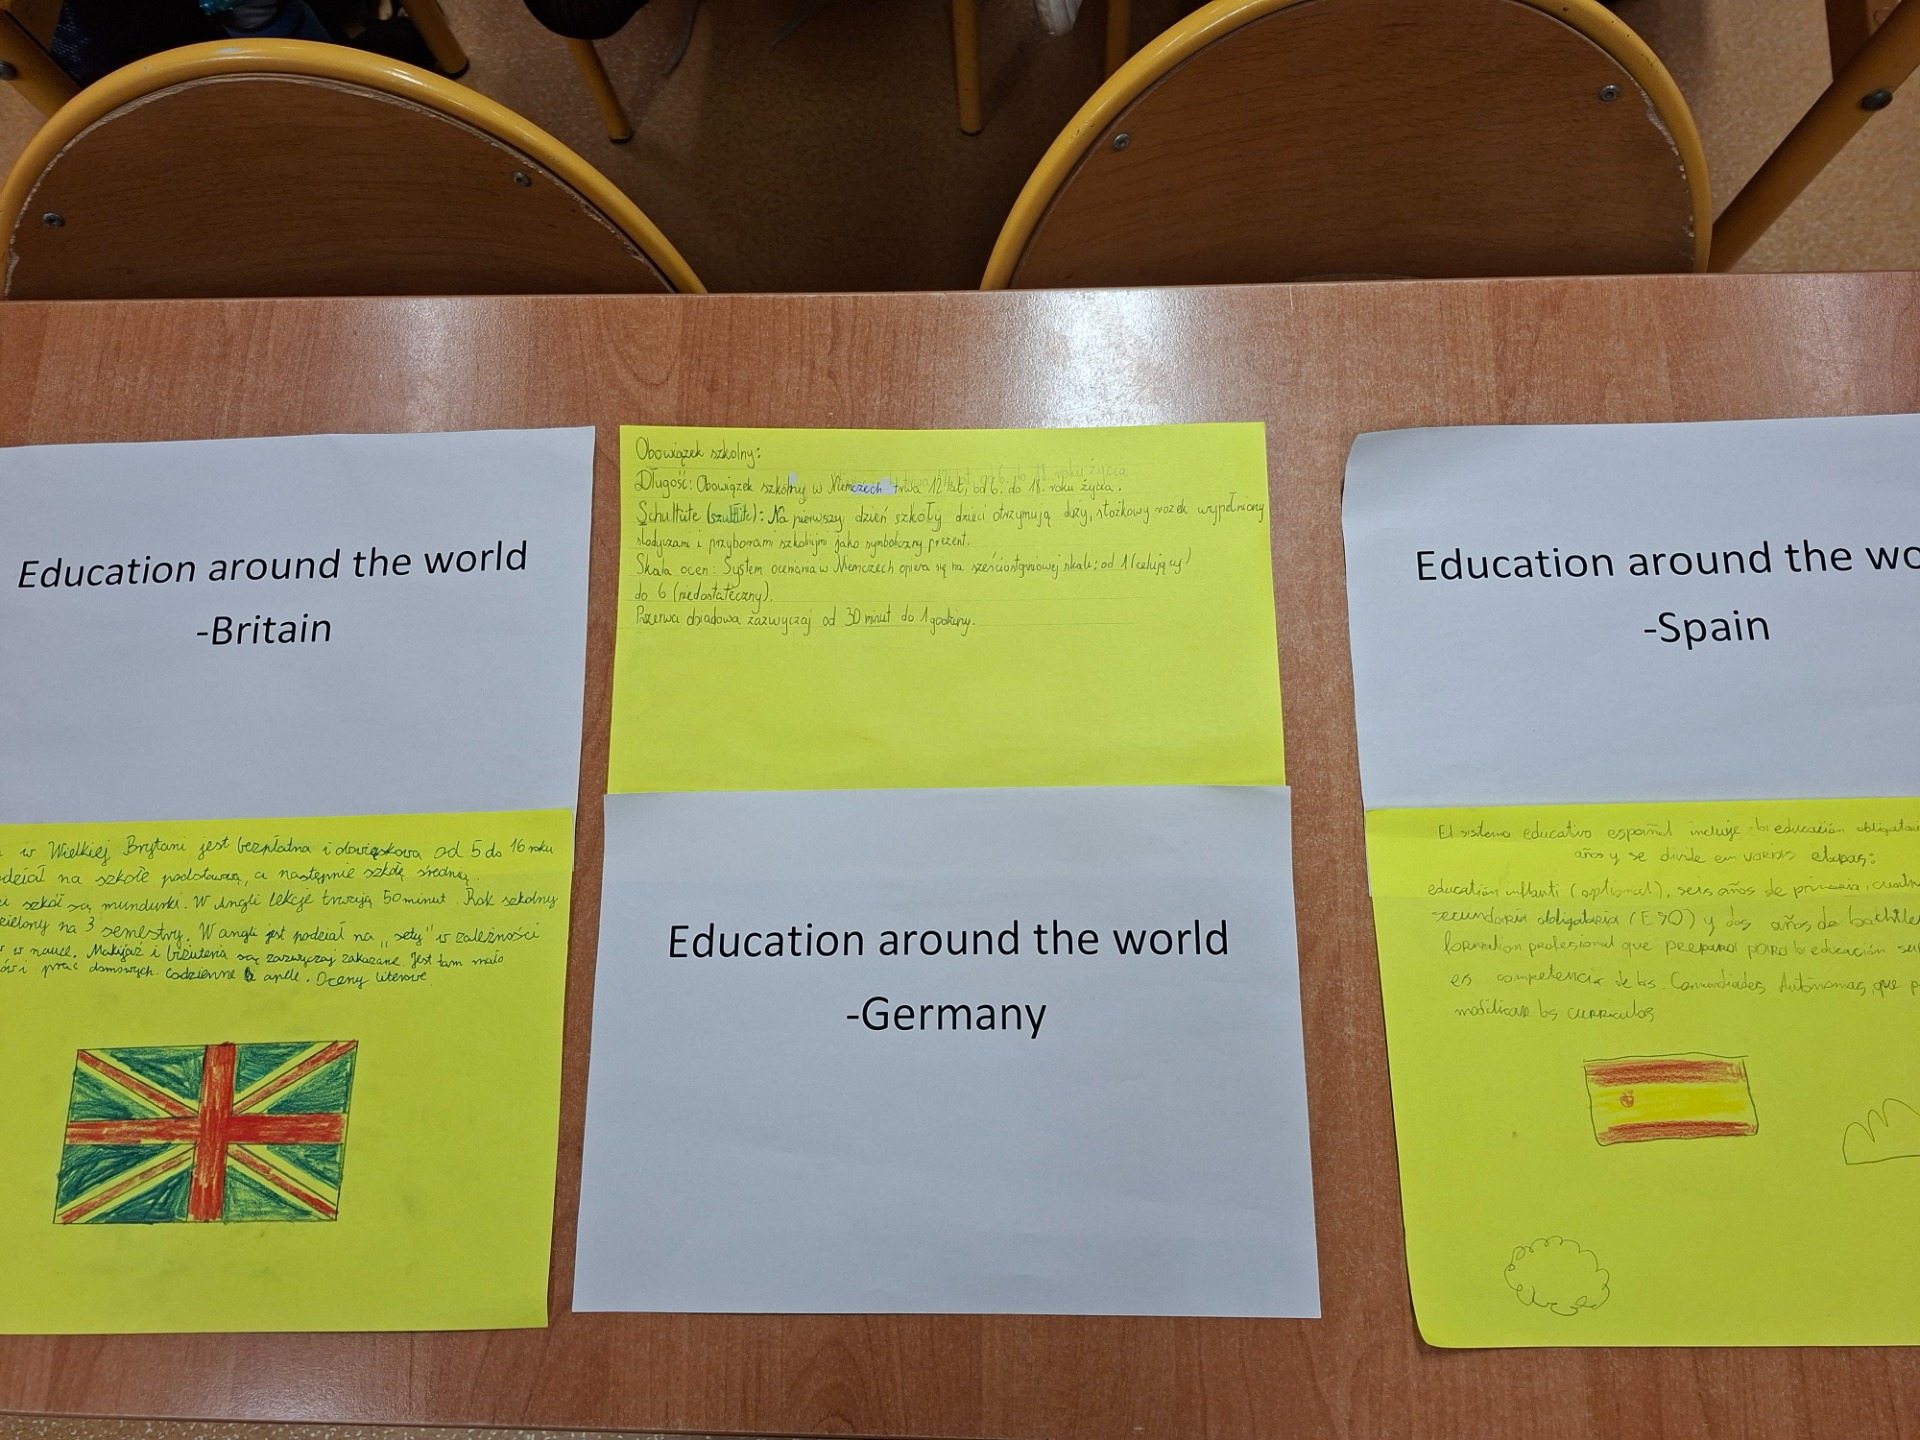 Education around the world
-Britain
w Wielkiej Brytani jest bezpłatna i obowiązkowa od 5 do 16 roku
na szkołe podstawową, a następnie szkołę średnią.
szkół są mundurki. W Angli lekcje trwają 50 minut. Rok szkolny
na 3 semestry. W angli jest podział na "sety" w zależności
w nauce. Makijaż i biżuteria są zazwyczaj zakazane. Jest tam mało
i prac domowych. Codzienne apele. Oceny literowe
Obowiązek szkolny:
Długość: Obowiązek szkolny w Niemczech trwa 12 lat, od 6. do 18. roku życia.
Schultüte (szultite): Na pierwszy dzień szkoły dzieci otrzymują duży, stożkowy rożek wypełniony
słodyczami i przyborami szkolnymi jako symboliczny prezent.
Skala ocen: System oceniania w Niemczech opiera się na sześciostopniowej skali: od 1 (celujący)
do 6 (niedostateczny).
Przerwa obiadowa zazwyczaj od 30 minut do 1 godziny.
Education around the world
-Germany
Education around the wo
-Spain
El sistema educativo español incluye la educación
años y se divide en varias etapas:
educatión infanti (optional), seis años de primaria,
secundaria obligatoria (ESO) y dos años de
formation profesional que prepara para la educación
es competencia de las Comunidades Autónomas, que
modificar los curriculos